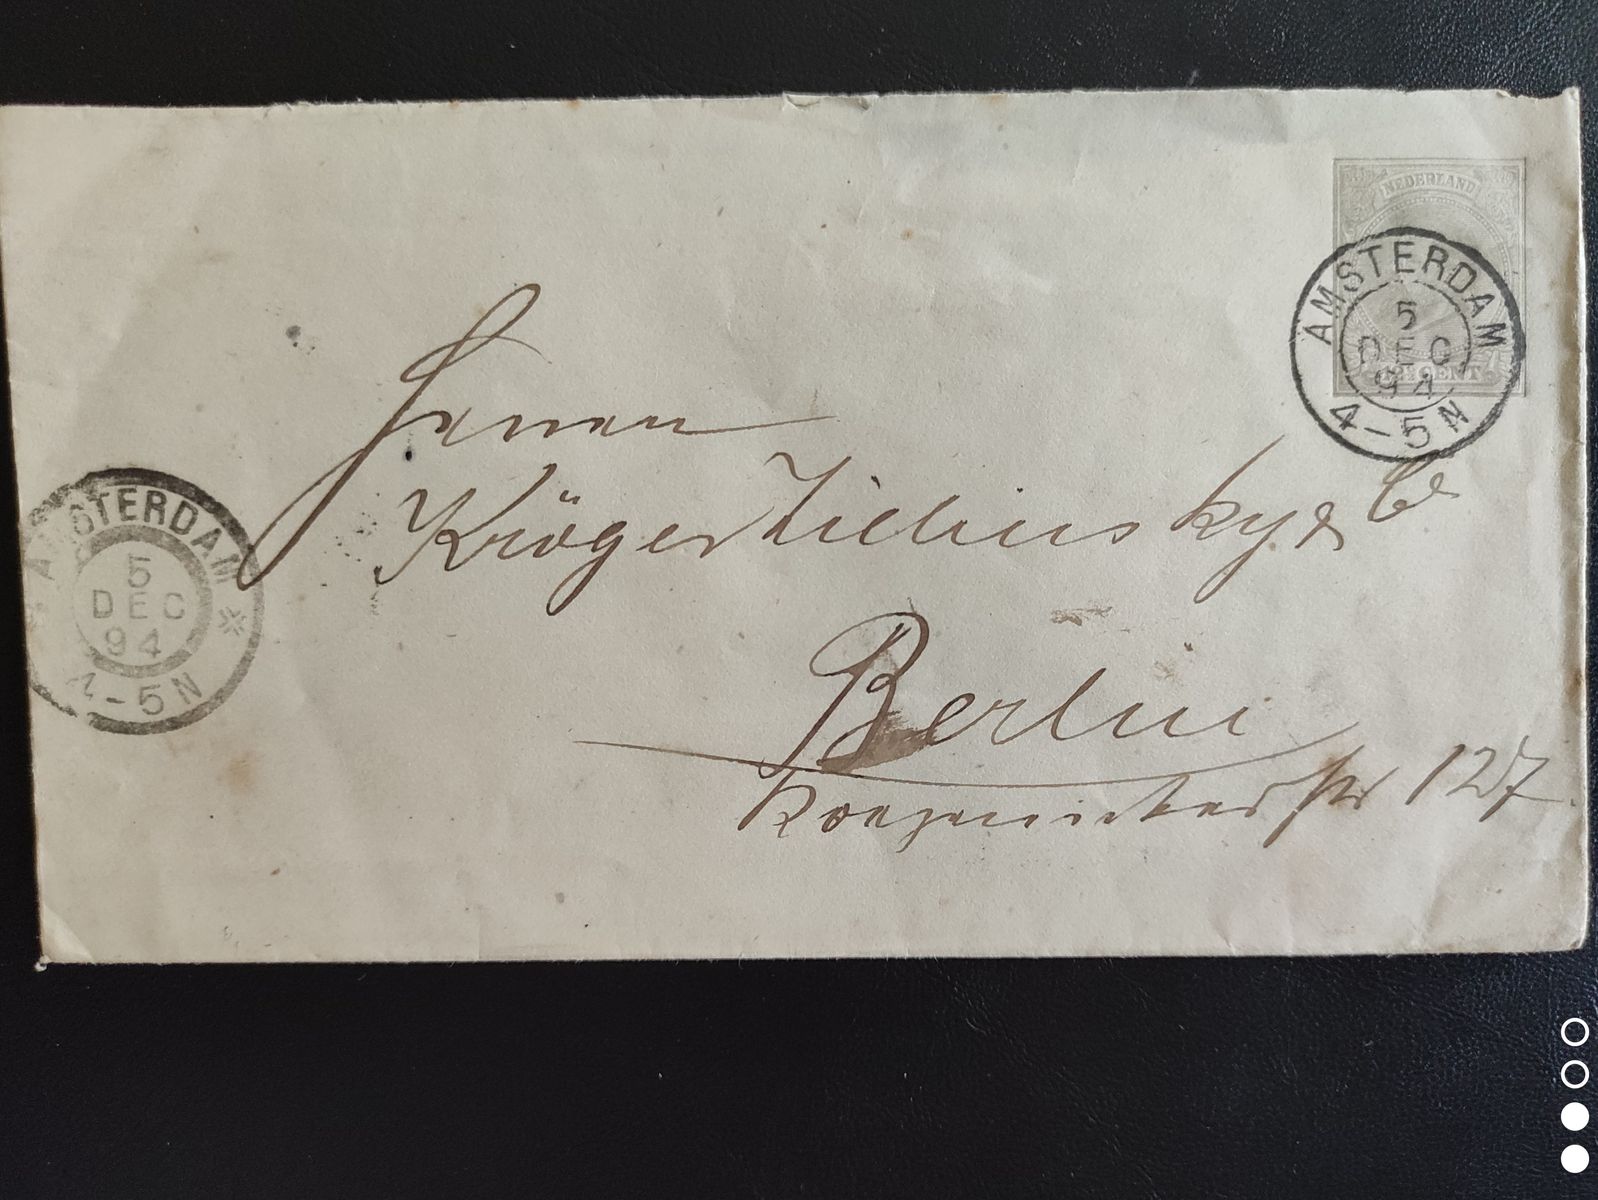 NEDERLAND
12½ CENT
AMSTERDAM
5
DEC
94
4-5N
Herren
Kröger Zielinsky & Co
Berlin
Koepenickerstr 127.
AMSTERDAM
5
DEC
94
4-5N